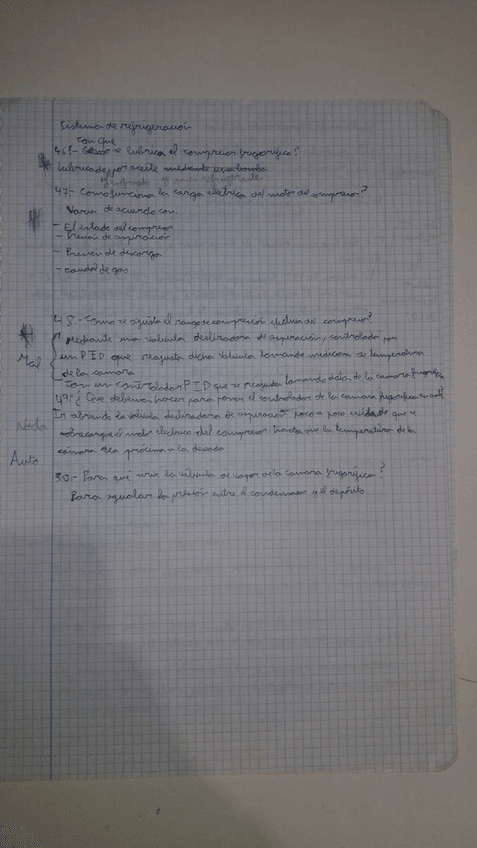 Sistema de refrigeración
con que
46ª- Como se lubrica el compresor frigorífico?
Lubricado por aceite mediante una bomba
47- Como funciona la carga eléctrica del motor del compresor?
Varia de acuerdo con:
- El estado del compresor
- Presion de aspiración
- Presion de descarga
- caudal de gas
48- Como se ajusta el rango de compresión efectiva del compresor?
Mediante una valvula deslizadora de aspiración, controlada por
un PID que reajusta dicha valvula tomando medicion de temperatura
de la camara
Mal
Con un controlador PID que se reajusta tomando datos de la camara frigorífica
49ª ¿ Que debemos hacer para poner el controlador de la camara frigorifica en
Ir abriendo la valvula deslizadora de aspiración poco a poco cuidado que se
Nada
sobrecargue el motor electrico del compresor hasta que la temperatura de la
cámara sea proxima a la deseada
Auto
50- Para qué sirve la válvula de vapor de la camara frigorífica?
Para igualar la presión entre el condensador y el depósito